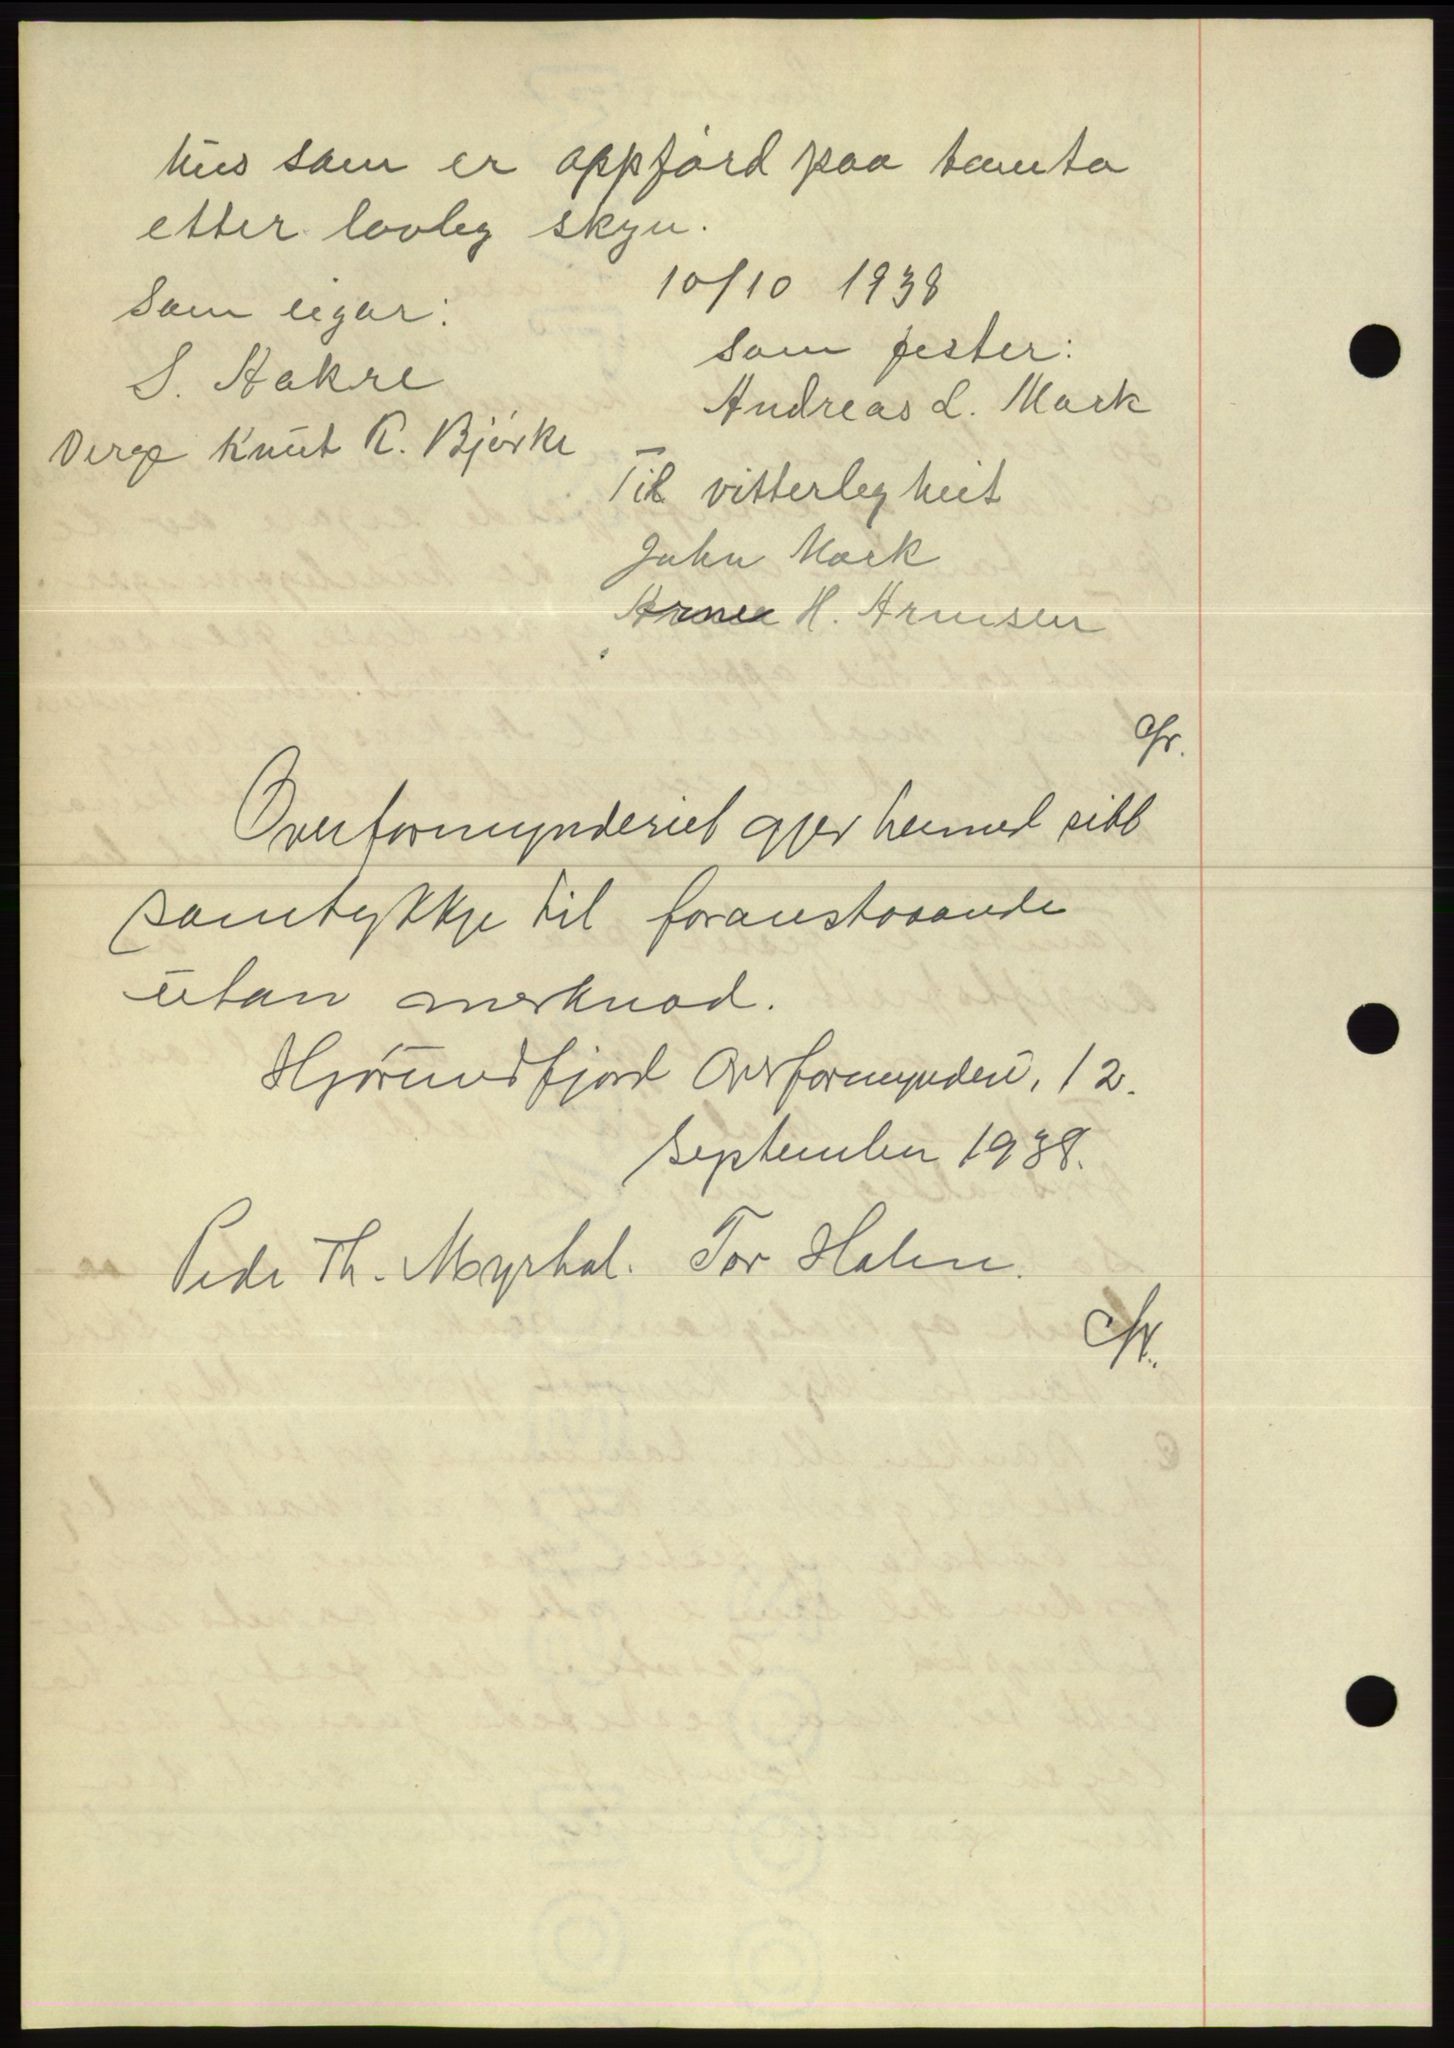 hus som er oppförd paa tomta
etter lovleg skyn.
10/10 1938
Som eigar:
S. Aakre
Verge Knut R. Bjørke
Som fester:
Andreas L. Mork
Til vitterlegheit
John Mork
Arne H. Arnesen
Overformynderiet gjer hermed sitt
samtykkje til foranstaaande
utan merknad.
Hjørundfjord Overformynderi, 12.
september 1938.
Peder Th. Myrhol. Tor Holen.